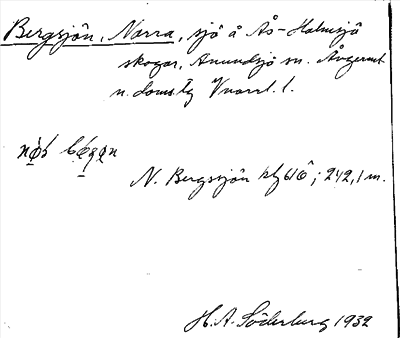 Bergsjön, Norra, sjö å Ås-Holmsjö
skogar, Anundsjö sn. Ångerml.
n. doms. Vnorrl. l.
N. Bergsjön 61Ö; 242,1 m.
H.A. Söderberg 1932